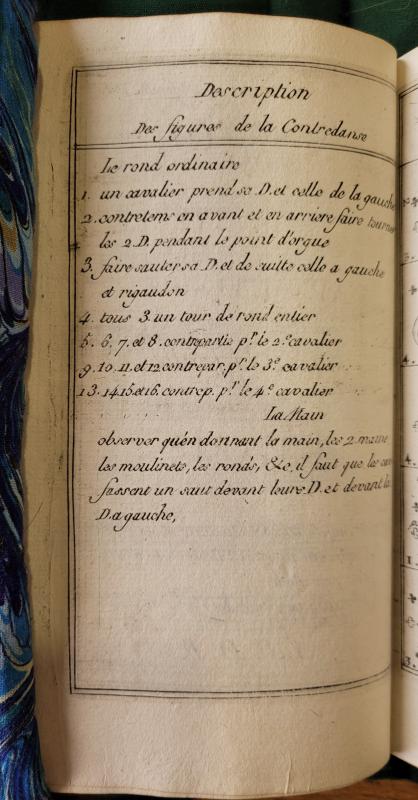 Description
Des figures de la Contredanse
Le rond ordinaire
1. un cavalier prend sa D. et celle de la gauche
2. contretems en avant et en arriere faire tourner
les 2 D. pendant le point d'orgue
3. faire sauter sa D. et de suitte celle a gauche
et rigaudon
4. tous 3. un tour de rond entier
5. 6. 7. et 8. contrepartie pr. le 2e cavalier
9. 10. 11. et 12 contrepar. pr. le 3e cavalier
13. 14. 15 et 16. contrep. pr. le 4e cavalier
La Main
observer quén donnant la main, les 2. mains
les moulinets, les ronds, &c, il faut que les
fassent un saut devant leurs D. et devant la
D. a gauche,